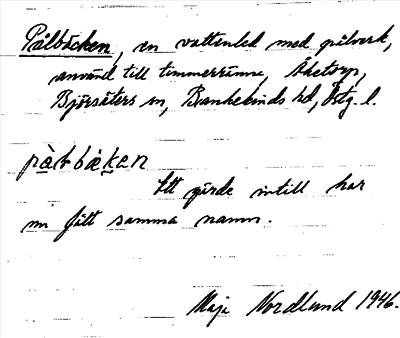 Pålbäcken, en vattenled med pålverk,
använd till timmerränna, Åketorp,
Björsäters sn, Bankekinds hd, Östg. l.
påℓbäken
Ett gärde intill har
nu fått samma namn.
Maja Nordlund 1946.